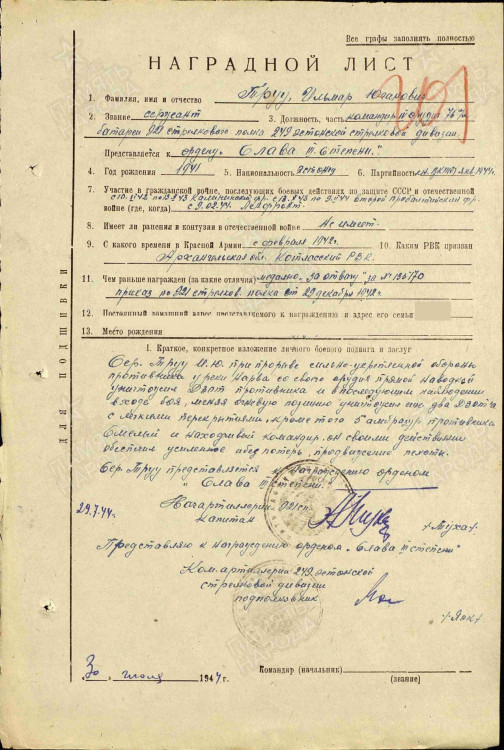 Все графы заполнять полностью
НАГРАДНОЙ ЛИСТ
1. Фамилия, имя и отчество Труу, Ильмар Юганович
2. Звание сержант 3. Должность, часть командир орудия 76 м/м
батареи 921 стрелкового полка 249 эстонской стрелковой дивизии
Представляется к ордену „Слава III степени."
4. Год рождения 5. Национальность эстонец 6. Партийность
7. Участие в гражданской войне, последующих боевых действиях по защите СССР и отечественной
войне (где, когда) с 9.02.44 Лен.фронт.
8. Имеет ли ранения и контузии в отечественной войне Не имеет.
9. С какого времени в Красной Армии с февраля 1942г. 10. Каким РВК призван
Архангельская обл. Котласский РВК.
11. Чем ранее награжден (за какие отличия) медалью „За отвагу" за № 136170
приказ по 921 стрелков. полка от 29 декабря 1942г.
12. Постоянный домашний адрес представляемого к награждению и адрес его семьи
13. Место рождения
I. Краткое, конкретное изложение личного боевого подвига и заслуг
Сер. Труу И.Ю. при прорыве сильно-укрепленной обороны
противника у реки Нарва со своего орудия прямой наводкой
уничтожил Дзот противника и в последующем наблюдении
в ходе боя, меняя огневую позицию уничтожил еще два Дзота
с легкими перекрытиями, кроме того 5 амбразур противника
Смелый и находчивый командир, он своими действиями
обеспечил усиленное без потерь, продвижение пехоты.
Сер. Труу представляется к награждению орденом
„Слава III степени."
29.7.44г. Начартиллерии 921 сп
капитан /Муха/
Представляю к награждению орденом „Слава III степени"
Ком. артиллерии 249 эстонской
стрелковой дивизии
подполковник
30 июля 1944 г.
Командир (начальник)
(звание)
ДЛЯ ПОДШИВКИ